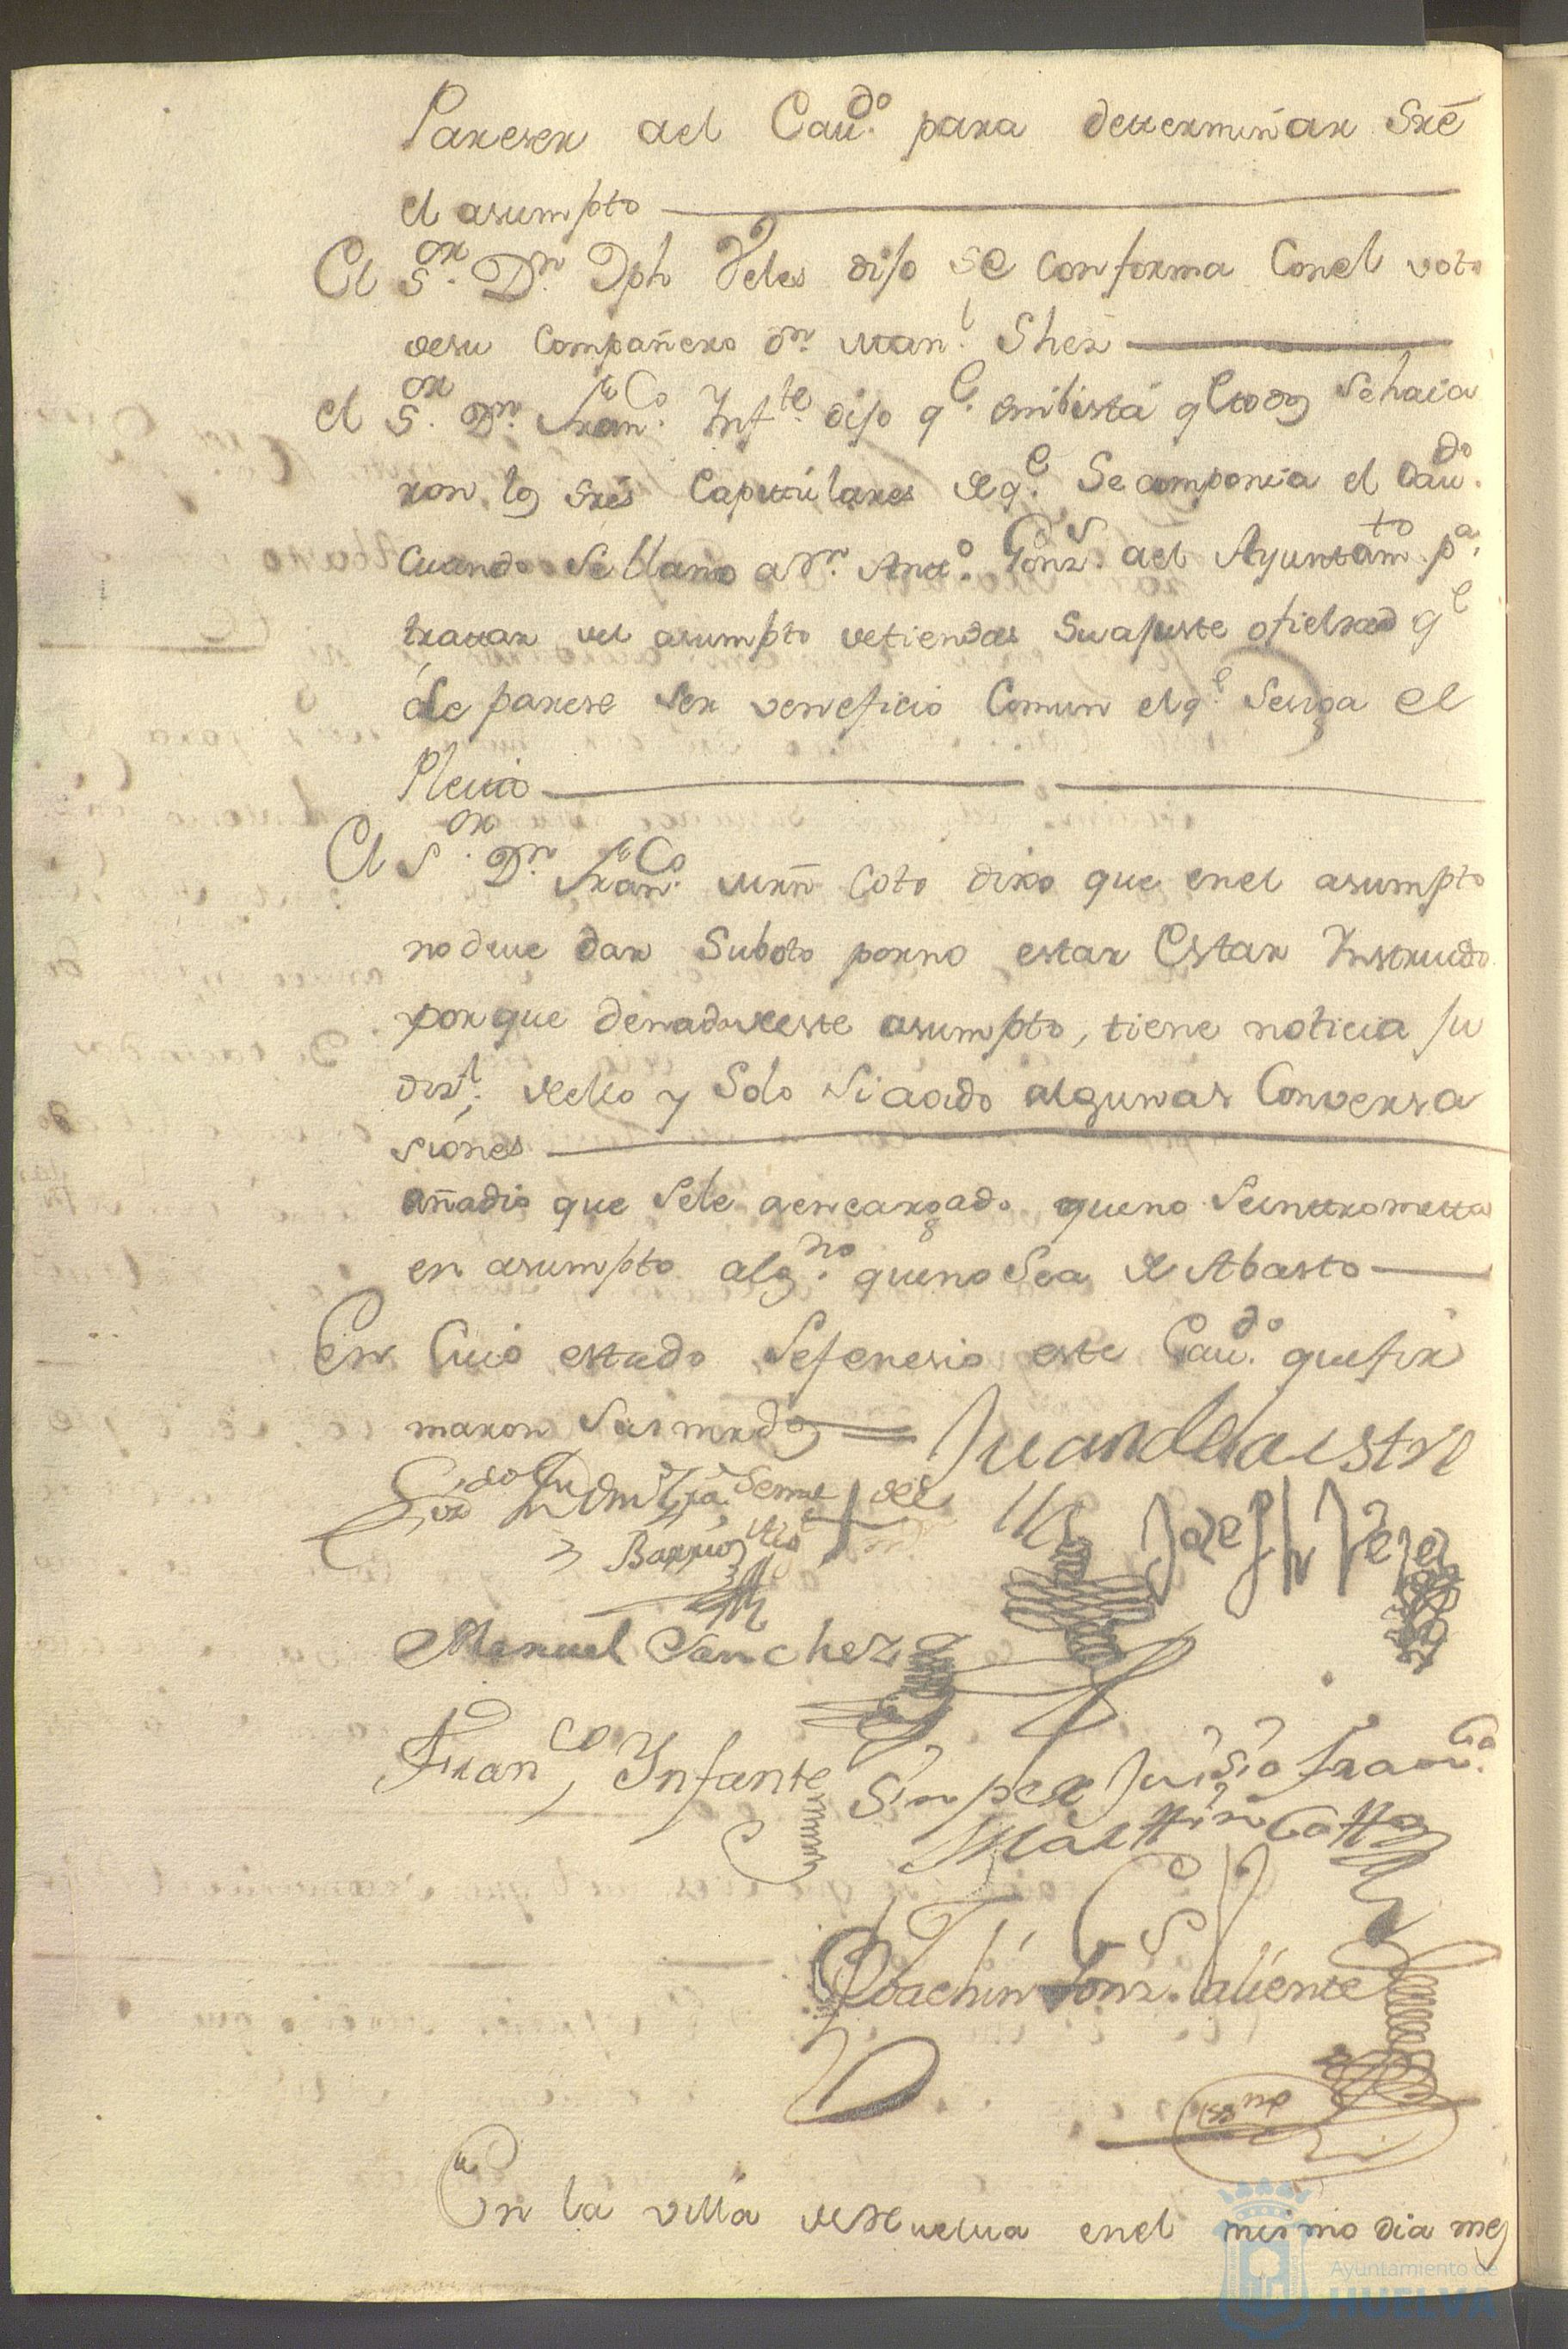 Pareser del Cavdo. para determinar Sre
el asumpto
El Sor. Dn. Jph Veles dijo se conforma Conel voto
desu Compañero dn. Manl. Shez
el Sor. Dn. Franco. Infte. dijo qe. enbista qe todos sehaia
ron los sres Capitulares de qe. Se componia el Cavdo.
Cuando se llamo a Dn. Anto. Gonzs. del Ayuntamto. pa.
tratar del asumpto detiendas Suajuste ofieldad qe
le parese ser veneficio Comun elqe. Sesiga el
Pleito
El Sor. Dn. Franco. Mrn Coto dixo que enel asumpto
nodeve dar Suboto porno estar Estar Instruido
porque denada deeste asumpto, tiene noticia ju
disl. dello y Solo si aoido algunas Conversa
siones
añadio que Sele aencargado queno Seintrometta
en asumpto algno. queno Sea de Abasto
En Cuio estado Sefenesio este Cavdo. quefir
maron Sus mrds
Juan de la
Barrios
Joseph Veles
Manuel Sanchez
Franco, Infante
Sin perJuisio Franco.
Marttin Cotto
Joachin Gonz. Caliente
En la villa de Huelva enel mismo dia mes
Ayuntamiento de
HUELVA